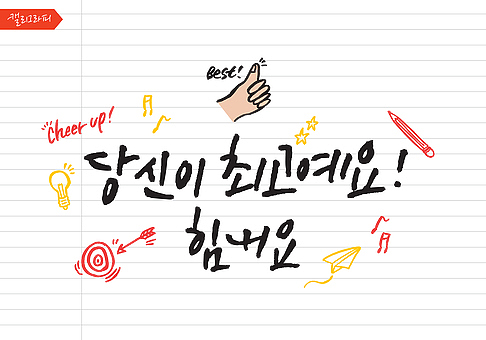 캘리그라피
Best!
Cheer up!
당신이 최고예요!
힘내요